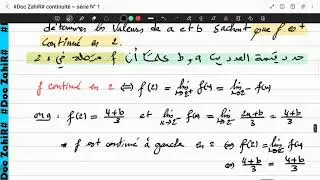 #Doc ZahiR# continuité – série N° 1
determines les valeurs de a et b sachant que f est
continue en 2.
حدد قيمة العددين a و b علما أن f متصلة في 2
f continue en 2 ⇔ f(2) = lim x→2⁺ f(x) = lim x→2⁻ f(x)
on a : f(2) = (4+b)/3 et lim x→2⁻ f(x) = lim x→2⁻ (2a+b)/3 = (4+b)/3
* f est continue à gauche en 2 ⇔ f(2) = lim x→2⁻ f(x)
⇔ (4+b)/3 = (4+b)/3
#Doc ZahiR#